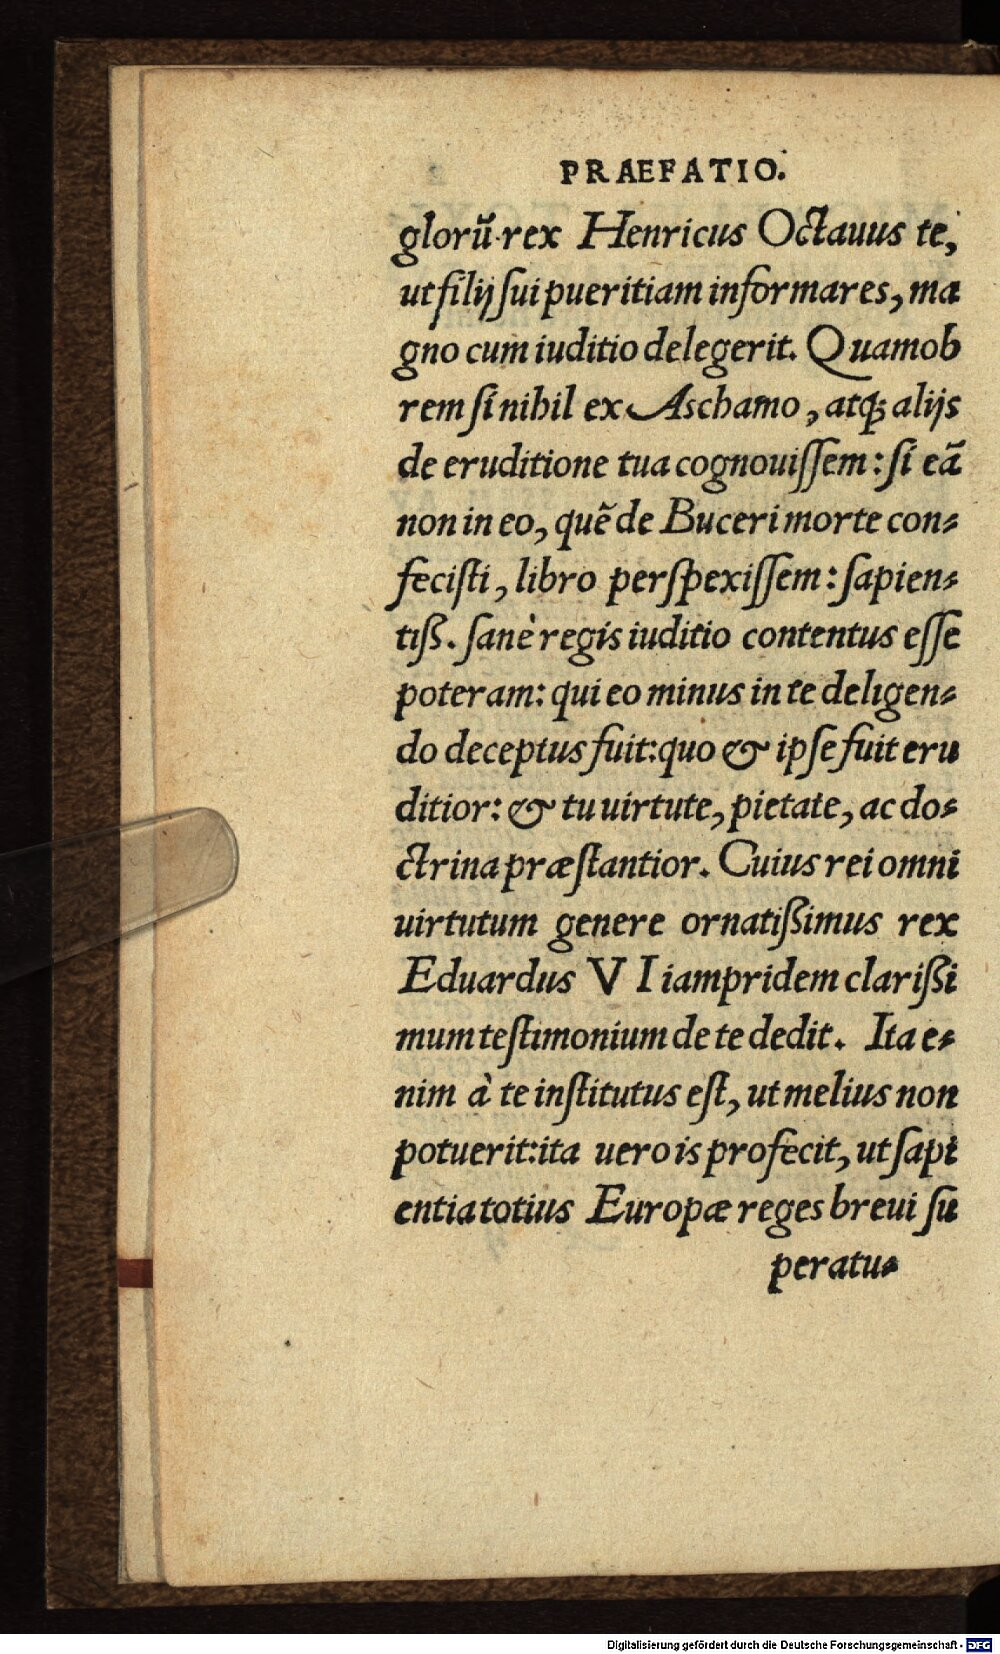 PRAEFATIO.
glorũ rex Henricus Octauus te,
ut filij ſui pueritiam informares, ma
gno cum iuditio delegerit. Quamob
rem ſi nihil ex Aschamo, atq; alijs
de eruditione tua cognouiſſem: ſi eã
non in eo, quẽ de Buceri morte con-
feciſti, libro perſpexiſſem: ſapien-
tiß. ſanè regis iuditio contentus eſſe
poteram: qui eo minus in te deligen-
do deceptus fuit: quo & ipſe fuit eru
ditior: & tu uirtute, pietate, ac do-
ctrina præſtantior. Cuius rei omni
uirtutum genere ornatißimus rex
Eduardus VI iampridem clarißi
mum teſtimonium de te dedit. Ita e-
nim à te inſtitutus eſt, ut melius non
potuerit: ita uero is profecit, ut ſapi
entia totius Europæ reges breui ſu
peratu-
Digitalisierung gefördert durch die Deutsche Forschungsgemeinschaft - DFG